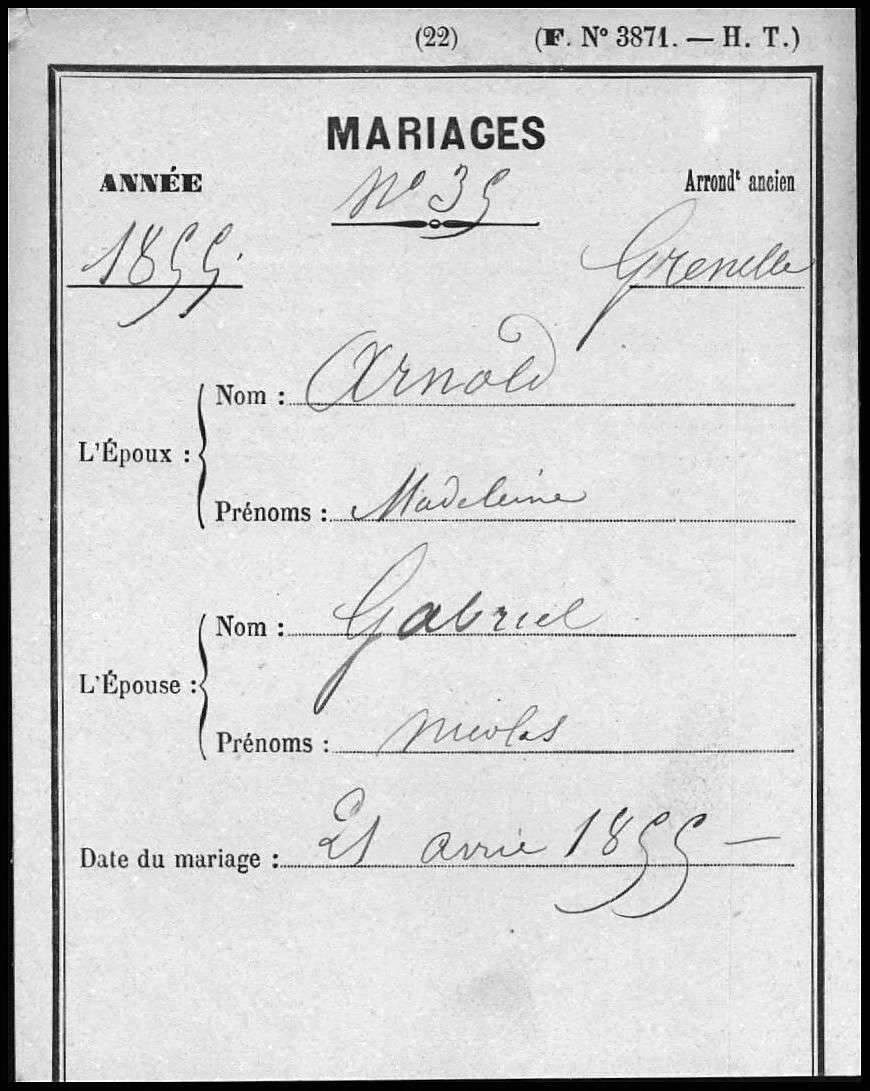 (22) (F. N° 3871. — H. T.)
MARIAGES
ANNÉE N° 35 Arrondt ancien
1855. Grenelle
Nom : Arnold
L'Époux :
Prénoms : Madeleine
Nom : Gabriel
L'Épouse :
Prénoms : Nicolas
Date du mariage : 21 avril 1855 —